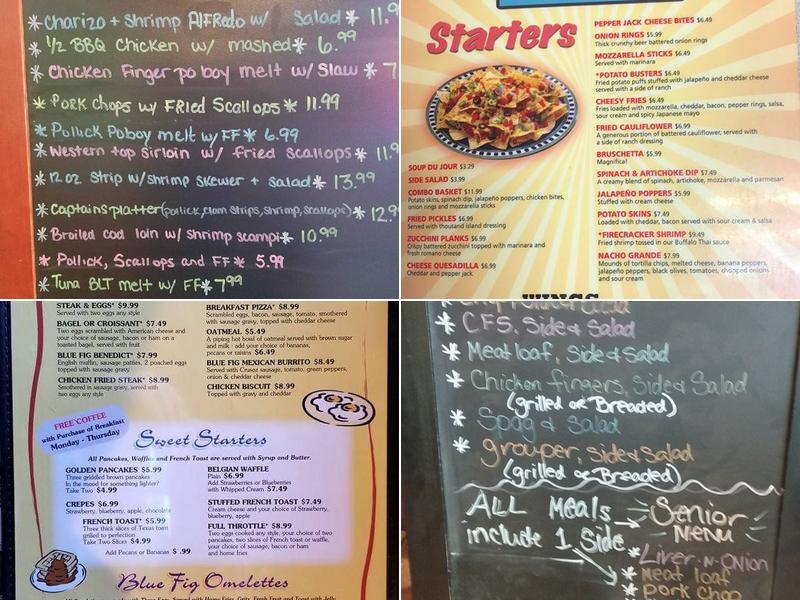 *Charizo + shrimp Alfredo w/ Salad * 11.9
*1/2 BBQ Chicken w/ mashed* 6.99
*Chicken Finger po boy melt w/ Slaw * 7
*Pork Chops w/ FRied Scallops* 11.99
*Pollick Poboy melt w/ FF* 6.99
*Western top sirloin w/ fried scallops* 11.9
*12 oz Strip w/shrimp skewer + salad* 13.99
*Captains platter (pollick, clam strips, shrimp, scallops)* 12.9
*Broiled cod loin w/ shrimp scampi* 10.99
*Pollick, Scallops and FF* 5.99
*Tuna BLT melt w/ FF* 7.99
Starters
SOUP DU JOUR $3.29
SIDE SALAD $3.99
COMBO BASKET $11.99
Potato skins, spinach dip, jalapeño poppers, chicken bites,
onion rings and mozzarella sticks
FRIED PICKLES $6.99
Served with thousand island dressing
ZUCCHINI PLANKS $6.99
Crispy battered zucchini topped with marinara and
fresh romano cheese
CHEESE QUESADILLA $6.99
Cheddar and pepper jack
PEPPER JACK CHEESE BITES $6.49
ONION RINGS $5.99
Thick crunchy beer battered onion rings
MOZZARELLA STICKS $6.49
Served with marinara
*POTATO BUSTERS $6.49
Fried potato puffs stuffed with jalapeño and cheddar cheese
served with a side of ranch
CHEESY FRIES $6.49
Fries loaded with mozzarella, cheddar, bacon, pepper rings, salsa,
sour cream and spicy Japanese mayo
FRIED CAULIFLOWER $6.99
A generous portion of battered cauliflower, served with
a side of ranch dressing
BRUSCHETTA $5.99
Magnifica!
SPINACH & ARTICHOKE DIP $7.49
A creamy blend of spinach, artichoke, mozzarella and parmesan
JALAPEÑO POPPERS $5.99
Stuffed with cream cheese
POTATO SKINS $7.49
Loaded with cheddar, bacon served with sour cream & salsa
*FIRECRACKER SHRIMP $9.49
Fried shrimp tossed in our Buffalo Thai sauce
NACHO GRANDE $7.99
Mounds of tortilla chips, melted cheese, banana peppers,
jalapeño peppers, black olives, tomatoes, chopped onions
and sour cream
WINGS
STEAK & EGGS* $9.99
Served with two eggs any style
BAGEL OR CROISSANT* $7.49
Two eggs scrambled with American cheese and
your choice of sausage, bacon or ham on a
toasted bagel, served with fruit
BLUE FIG BENEDICT* $7.99
English muffin, sausage patties, 2 poached eggs
topped with sausage gravy
CHICKEN FRIED STEAK* $8.99
Smothered in sausage gravy, served with
two eggs any style
BREAKFAST PIZZA* $8.99
Scrambled eggs, bacon, sausage, tomato, smothered
with sausage gravy, topped with cheddar cheese
OATMEAL $5.49
A piping hot bowl of oatmeal served with brown sugar
and milk - add your choice of bananas,
pecans or raisins $6.49
BLUE FIG MEXICAN BURRITO $8.49
Served with Crusor sausage, tomato, green peppers,
onion & cheddar cheese
CHICKEN BISCUIT $8.99
Topped with gravy and cheddar
FREE COFFEE
with Purchase of Breakfast
Monday - Thursday
Sweet Starters
All Pancakes, Waffles and French Toast are served with Syrup and Butter.
GOLDEN PANCAKES $5.99
Three griddled brown pancakes
In the mood for something lighter?
Take Two $4.99
CREPES $6.99
Strawberry, blueberry, apple, chocolate
FRENCH TOAST* $5.99
Three thick slices of Texas toast
grilled to perfection
Take Two Slices $4.99
Add Pecans or Bananas $ .99
BELGIAN WAFFLE
Plain $6.99
Add Strawberries or Blueberries
with Whipped Cream $7.49
STUFFED FRENCH TOAST $7.49
Cream cheese and your choice of Strawberry,
blueberry, apple
FULL THROTTLE* $8.99
Two eggs cooked any style, your choice of two
pancakes, two slices of French toast or waffle,
your choice of sausage, bacon or ham
and home fries
Blue Fig Omelettes
* CFS, Side & Salad
* Meatloaf, Side & Salad
* Chicken fingers, Side & Salad
(grilled or Breaded)
* Spag & Salad
* grouper, Side & Salad
(grilled or Breaded)
ALL Meals
include 1 Side
Senior
MENU
*Liver-N-Onion
*Meat loaf
*Pork Chop